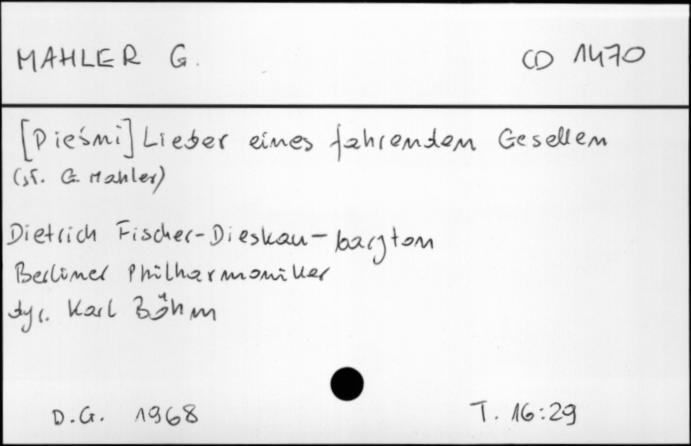 MAHLER G. CD 1470
[Pieśni] Lieder eines fahrenden Gesellen
(sł. G. Mahler)
Dietrich Fischer-Dieskau - baryton
Berliner Philharmoniker
dyr. Karl Böhm
D.G. 1968 T. 16:29